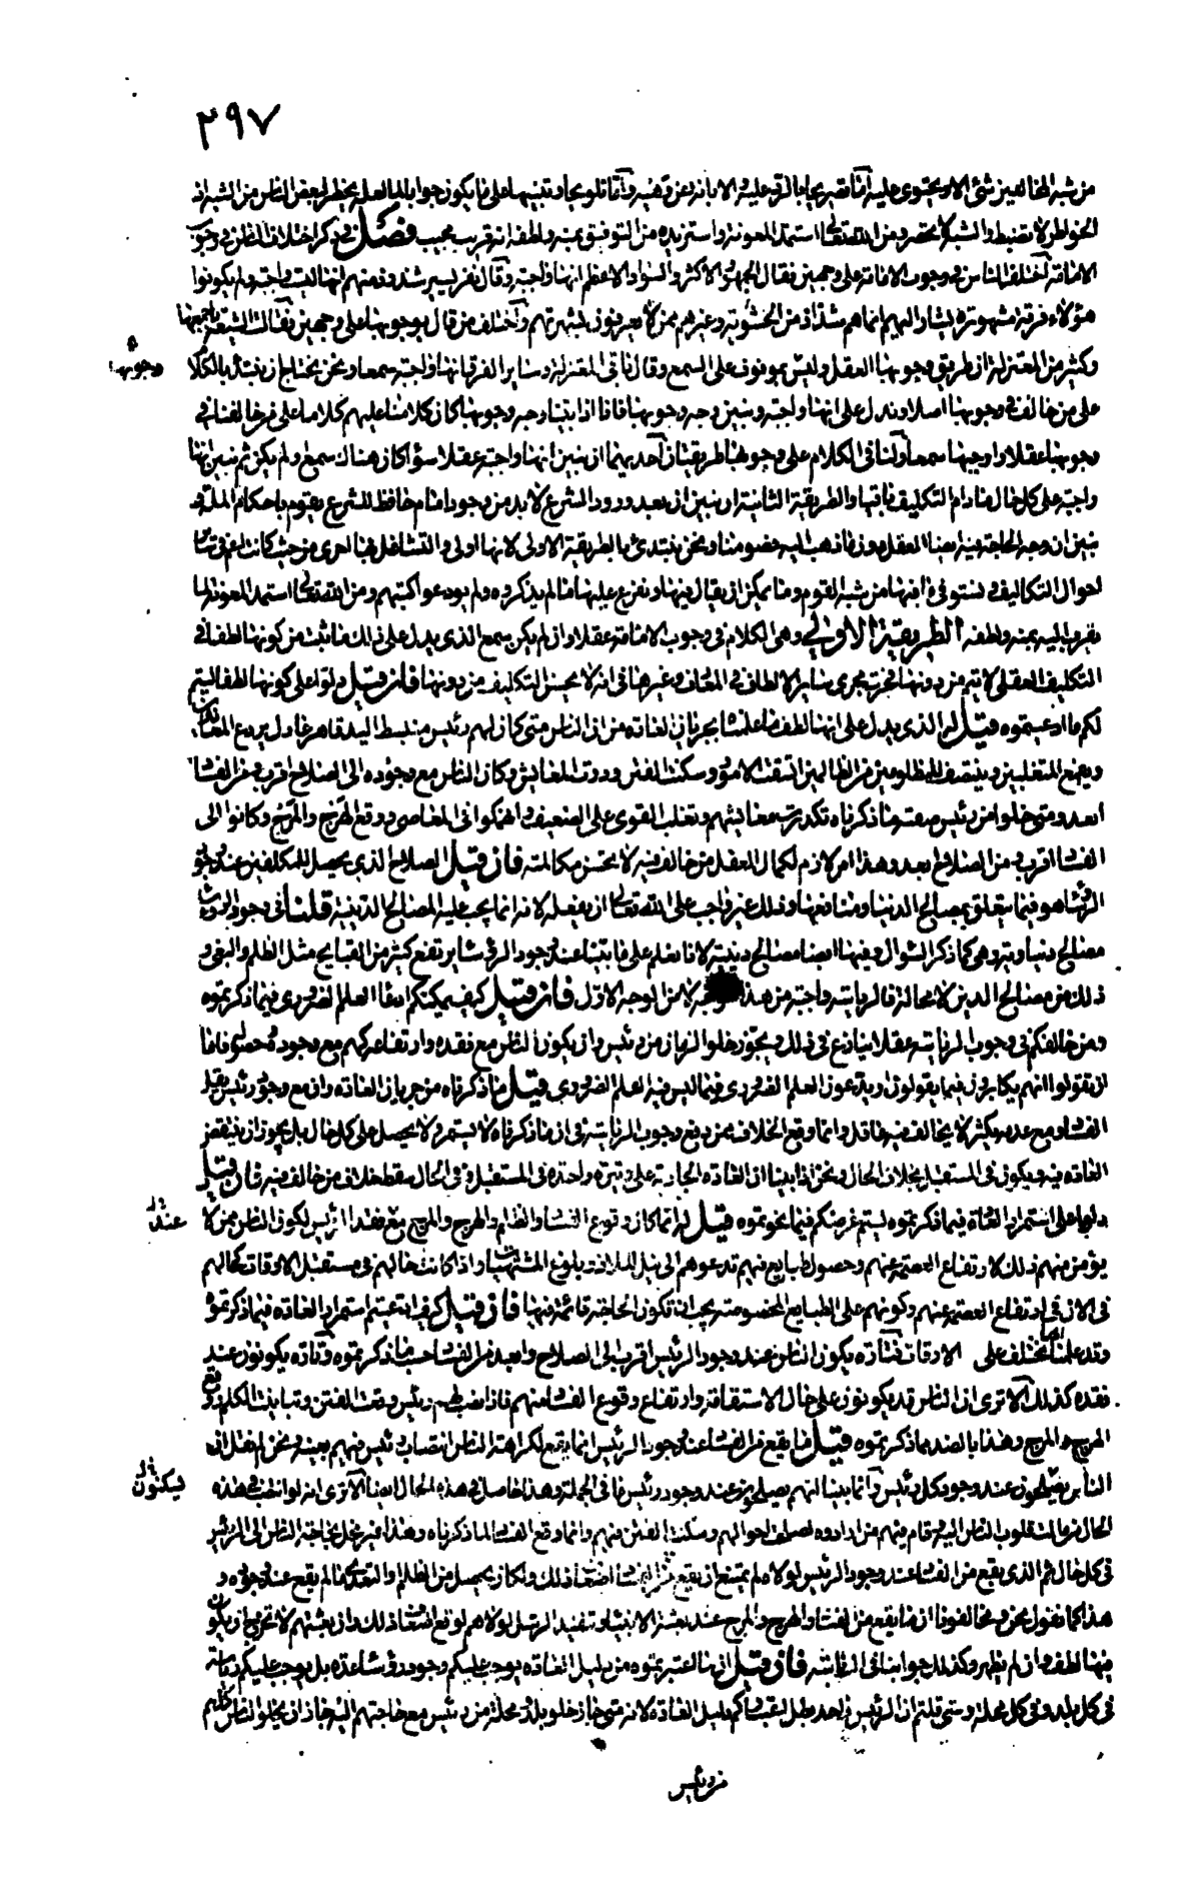 ٣٩٧
من شبه المخالفين شئ الا ويحتوى عليه اما تصريحا بالرد عليه والابانة عن وهنه واما تلويحا وتنبيها على ما يكون جوابا لما لعله يخطر لبعض الناس من الشبه اذ
الخواطر لا تضبط والشبه لا تنحصر ومن الله تعالى استمد المعونة واستزيده من التوفيق بمنه ولطفه انه قريب مجيب فصل في ذكر اختلاف الناس في وجوب
الامامة اختلف الناس في وجوب الامامة على وجهين فقال الجمهور الاكثر والسواد الاعظم انها واجبة وقال نفر يسير شذوذ منهم انها ليست واجبة ولم يكونوا
هؤلاء فرقة مشهورة يشار اليهم انما هم شذاذ من الحشوية وغيرهم ممن لا يعرفون لشهرتهم واختلف من قال بوجوبها على وجهين فقالت الشيعة باجمعها
وكثير من المعتزلة ان طريق وجوبها العقل وليس بموقوف على السمع وقال باقي المعتزلة وسائر الفرق انها واجبة سمعا ونحن نحتاج ان نبتدئ بالكلام
وجوبها
على من خالف في وجوبها اصلا وندل على انها واجبة ونبين وجه وجوبها فانا اذا بينا وجه وجوبها كان كلامنا عليهم كلاما على من خالفنا في
وجوبها عقلا واوجبها سمعا ولنا في الكلام على وجوبها طريقتان احديهما ان نبين انها واجبة عقلا سواء كان هناك سمع او لم يكن ثم نبين انها
واجبة على كل حال مادام التكليف باقيا والطريقة الثانية ان نبين ان بعد ورود الشرع لابد من وجود امام حافظ للشرع يقوم باحكام الملة
نبين ان وجه الحاجة فيه ايضا العقل دون ما ذهب اليه خصومنا ونحن نبتدئ بالطريقة الاولى لانها اولى والتشاغل بها احرى من حيث كانت اعم في سائر
احوال التكاليف نستوفي ما فيها من شبه القوم وما يمكن ان يقال فيها ونفرع عليها ما لم يذكروه ولم يودعوا كتبهم ومن الله تعالى استمد المعونة لما
يقرب اليه بمنه ولطفه الطريقة الاولى وهي الكلام في وجوب الامامة عقلا وان لم يكن سمع الذي يدل على ذلك ما ثبت من كونها لطفا في
التكليف العقلي لا يتم من دونها فجرت مجرى سائر الالطاف في المعارف وغيرها في انه لا يحسن التكليف من دونها فان قيل دلوا على كونها لطفا ليتم
لكم ما ادعيتموه قيل له الذي يدل على انها لطف ما علمناه بجريان العادة من ان الناس متى كان لهم رئيس منبسط اليد قاهر عادل يردع المعاندين
ويقمع المتغلبين وينتصف للمظلومين من الظالمين اتسقت الامور وسكنت الفتن ودرت المعايش وكان الناس مع وجوده الى الصلاح اقرب ومن الفساد
ابعد ومتى خلوا من رئيس صفته ما ذكرناه تكدرت معايشهم وتغلب القوي على الضعيف وانهمكوا في المعاصي ووقع الهرج والمرج وكانوا الى
الفساد اقرب ومن الصلاح ابعد وهذا امر لازم لكمال العقل من خالف فيه لا تحسن مكالمته فان قيل الصلاح الذي يحصل للمكلفين عند وجود
الرؤساء هو فيما يتعلق بمصالح الدنيا ومنافعها وذلك غير واجب على الله تعالى ان يفعله لانه انما يجب عليه المصالح الدينية قلنا في وجود الرؤساء
مصالح دنياوية وهي كما ذكر السؤال وفيها ايضا مصالح دينية لانا نعلم على ما بينا عند وجود الرؤساء يرتفع كثير من القبايح مثل الظلم والبغي و
ذلك من مصالح الدين لا محالة فالرياسة واجبة من هذا الوجه لا من الوجه الاول فان قيل كيف يمكنكم ادعاء العلم الضروري فيما ذكرتموه
ومن خالفكم في وجوب الرئاسة عقلا ينازع في ذلك ويجوز خلو الزمان من رئيس وان يكون الناس مع فقده وارتفاعه كهم مع وجوده وحصوله فاما
ان تقولوا انهم يكابرون فيما يقولون او يدعون العلم الضروري فيما ليس فيه العلم الضروري قيل ما ذكرناه من جريان العادة وان مع وجود رئيس يقل
الفساد ومع عدمه يكثر لا يخالف فيه عاقل وانما وقع الخلاف ممن دفع وجوب الرياسة في ان ما ذكرناه لا يستمر ولا يحصل على كل حال بل يجوز ان ينتقض
العادة فيه ويكون في المستقبل بخلاف الحال ونحن اذا بينا ان العادة الجارية على وتيرة واحدة في المستقبل وفي الحال سقط خلاف من خالف فيه فان قيل
دلوا على استمرار العادة فيما ذكرتموه ليتم غرضكم فيما نحوتموه قيل له انما كان وقوع الفساد والظلم والهرج والمرج يقع فقد الرئيس لكون الناس ممن لا
عند
يؤمن منهم ذلك لارتفاع العصمة عنهم وحصول طبايع فيهم تدعوهم الى نيل الملاذ وبلوغ المشتهيات واذا كانت حالهم في مستقبل الاوقات كحالهم
في الان في ارتفاع العصمة عنهم وكونهم على الطبايع المخصوصة يجب ان تكون الحاجة قائمة فيها فان قيل كيف ادعيتم استمرار العادة فيما ذكرتموه
وقد علمنا انها تختلف على الاوقات فتارة يكون الناس عند وجود الرئيس اقرب الى الصلاح وابعد من الفساد حسب ما ذكرتموه وتارة يكونون عند
فقده كذلك الا ترى ان الناس قد يكونون على حال الاستقامة وارتفاع وقوع الفساد منهم فاذا نصب لهم رئيس وقعت الفتن وتباينت الكلم ووقع
الهرج والمرج وهذا بالضد مما ذكرتموه قيل ما يقع من الفساد عند وجود الرئيس انما يقع لكراهة الناس انتصاب رئيس فيهم بعينه ونحن لم نقل ان
الناس يصلحون عند وجود كل رئيس وانما بينا انهم يصلحون عند وجود رئيس ما في الجملة وهذا حاصل في هذه الحال ايضا الا ترى انه لو انتصب في هذه
ليكون
الحال من مالت قلوب الناس اليه وقام فيهم من ارادوه لصلحت احوالهم وسكنت الفتن فيهم وانما وقع الفساد لما ذكرناه وهذا غير مخل بحاجة الناس الى الرئيس
في كل حال ثم الذي يقع من الفساد عند وجود الرئيس لولاه لم يمتنع ان يقع من الفساد اضعاف ذلك ولكان يحصل من الظلم والتعدي ما لم يقع عند وجوده و
هذا كما نقول نحن ومخالفونا ان ما يقع من الفساد والهرج والمرج عند بعثة الانبياء وتنفيذ الرسل لولاهم لوقع اضعاف ذلك وان بعثتهم لا تخرج ان يكون
فيها لطف وان لم يظهر وكذلك جوابنا في الرئاسة فان قيل ان ما اعتبرتموه من دليل العادة يوجب عليكم وجود رؤساء عدة بل يوجب عليكم رياسة
في كل بلد وفي كل محلة ومتى قلتم ان الرئيس واحد بطل اعتباركم بدليل العادة لانه متى جاز خلو بلد ومحلة من رئيس مع حاجتهم اليه جاز ان يخلو الناس كلهم
من رئيس